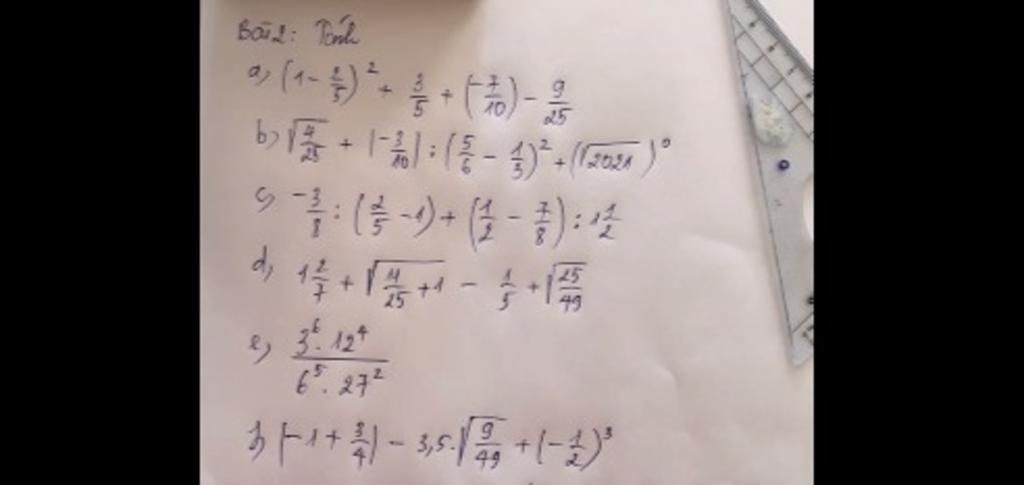 Bài 2: Tính
a) (1 - 2/5)² + 3/5 + (-7/10) - 9/25
b) √(4/25) + |-3/10| : (5/6 - 1/3)² + (√2021)⁰
c) -3/8 : (2/5 - 1) + (1/2 - 7/8) : 1 1/2
d) 1 2/7 + √(11/25 + 1) - 1/5 + √(25/49)
e) (3⁶ . 12⁴)/(6⁵ . 27²)
f) |-1 + 3/4| - 3,5 . √(9/49) + (-1/2)³